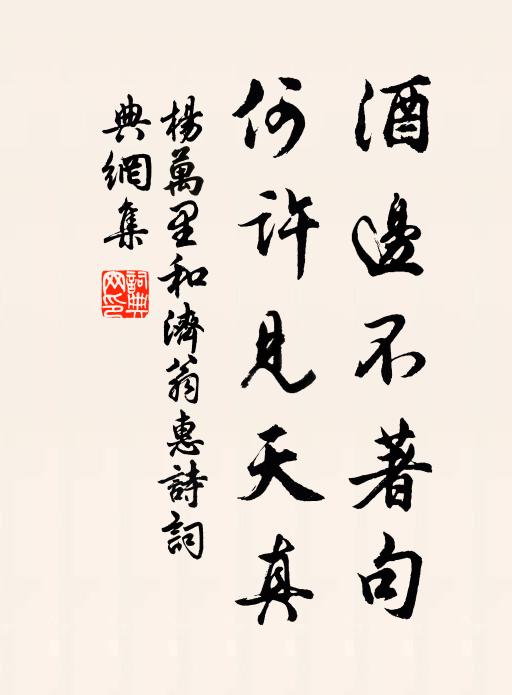 酒邊不著句
何許見天真
楊萬里和濟翁惠詩詞
典網集
詞典網印